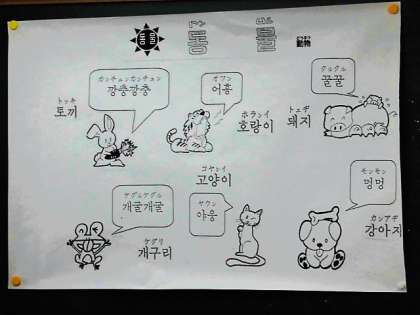 동물
動物
カンチュンカンチュン
깡충깡충
トッキ
토끼
オフン
어흥
ホランイ
호랑이
クルクル
꿀꿀
トェヂ
돼지
ケグルケグル
개굴개굴
ケグリ
개구리
コヤンイ
고양이
ヤウン
야옹
モンモン
멍멍
カンアヂ
강아지